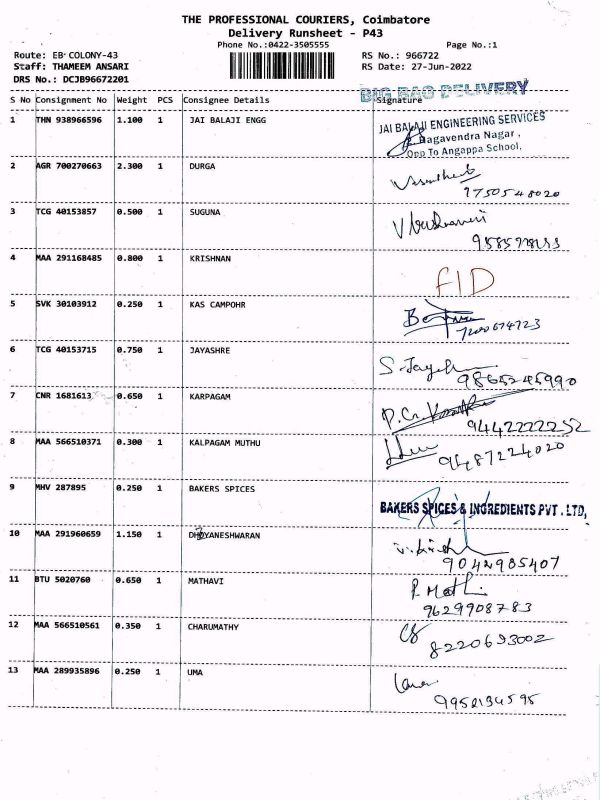 THE PROFESSIONAL COURIERS, Coimbatore
Delivery Runsheet - P43
Phone No.:0422-3505555 Page No.:1
Route: EB COLONY-43 RS No.: 966722
Staff: THAMEEM ANSARI RS Date: 27-Jun-2022
DRS No.: DCJB96672201
BIG BAG DELIVERY
S No Consignment No Weight PCS Consignee Details Signature
1 THN 938966596 1.100 1 JAI BALAJI ENGG JAI BALAJI ENGINEERING SERVICES
Ragavendra Nagar,
Opp To Angappa School,
2 AGR 700270663 2.300 1 DURGA
9750548020
3 TCG 40153857 0.500 1 SUGUNA
4 MAA 291168485 0.800 1 KRISHNAN
FID
5 SVK 30103912 0.250 1 KAS CAMPOHR
7200674723
6 TCG 40153715 0.750 1 JAYASHRE
9865245990
7 CNR 1681613 0.650 1 KARPAGAM
9442222252
8 MAA 566510371 0.300 1 KALPAGAM MUTHU
9487224020
9 MHV 287895 0.250 1 BAKERS SPICES
BAKERS SPICES & INGREDIENTS PVT. LTD,
10 MAA 291960659 1.150 1
9042985407
11 BTU 5020760 0.650 1 MATHAVI
9629908783
12 MAA 566510561 0.350 1 CHARUMATHY
8220693002
13 MAA 289935896 0.250 1 UMA
9952134595